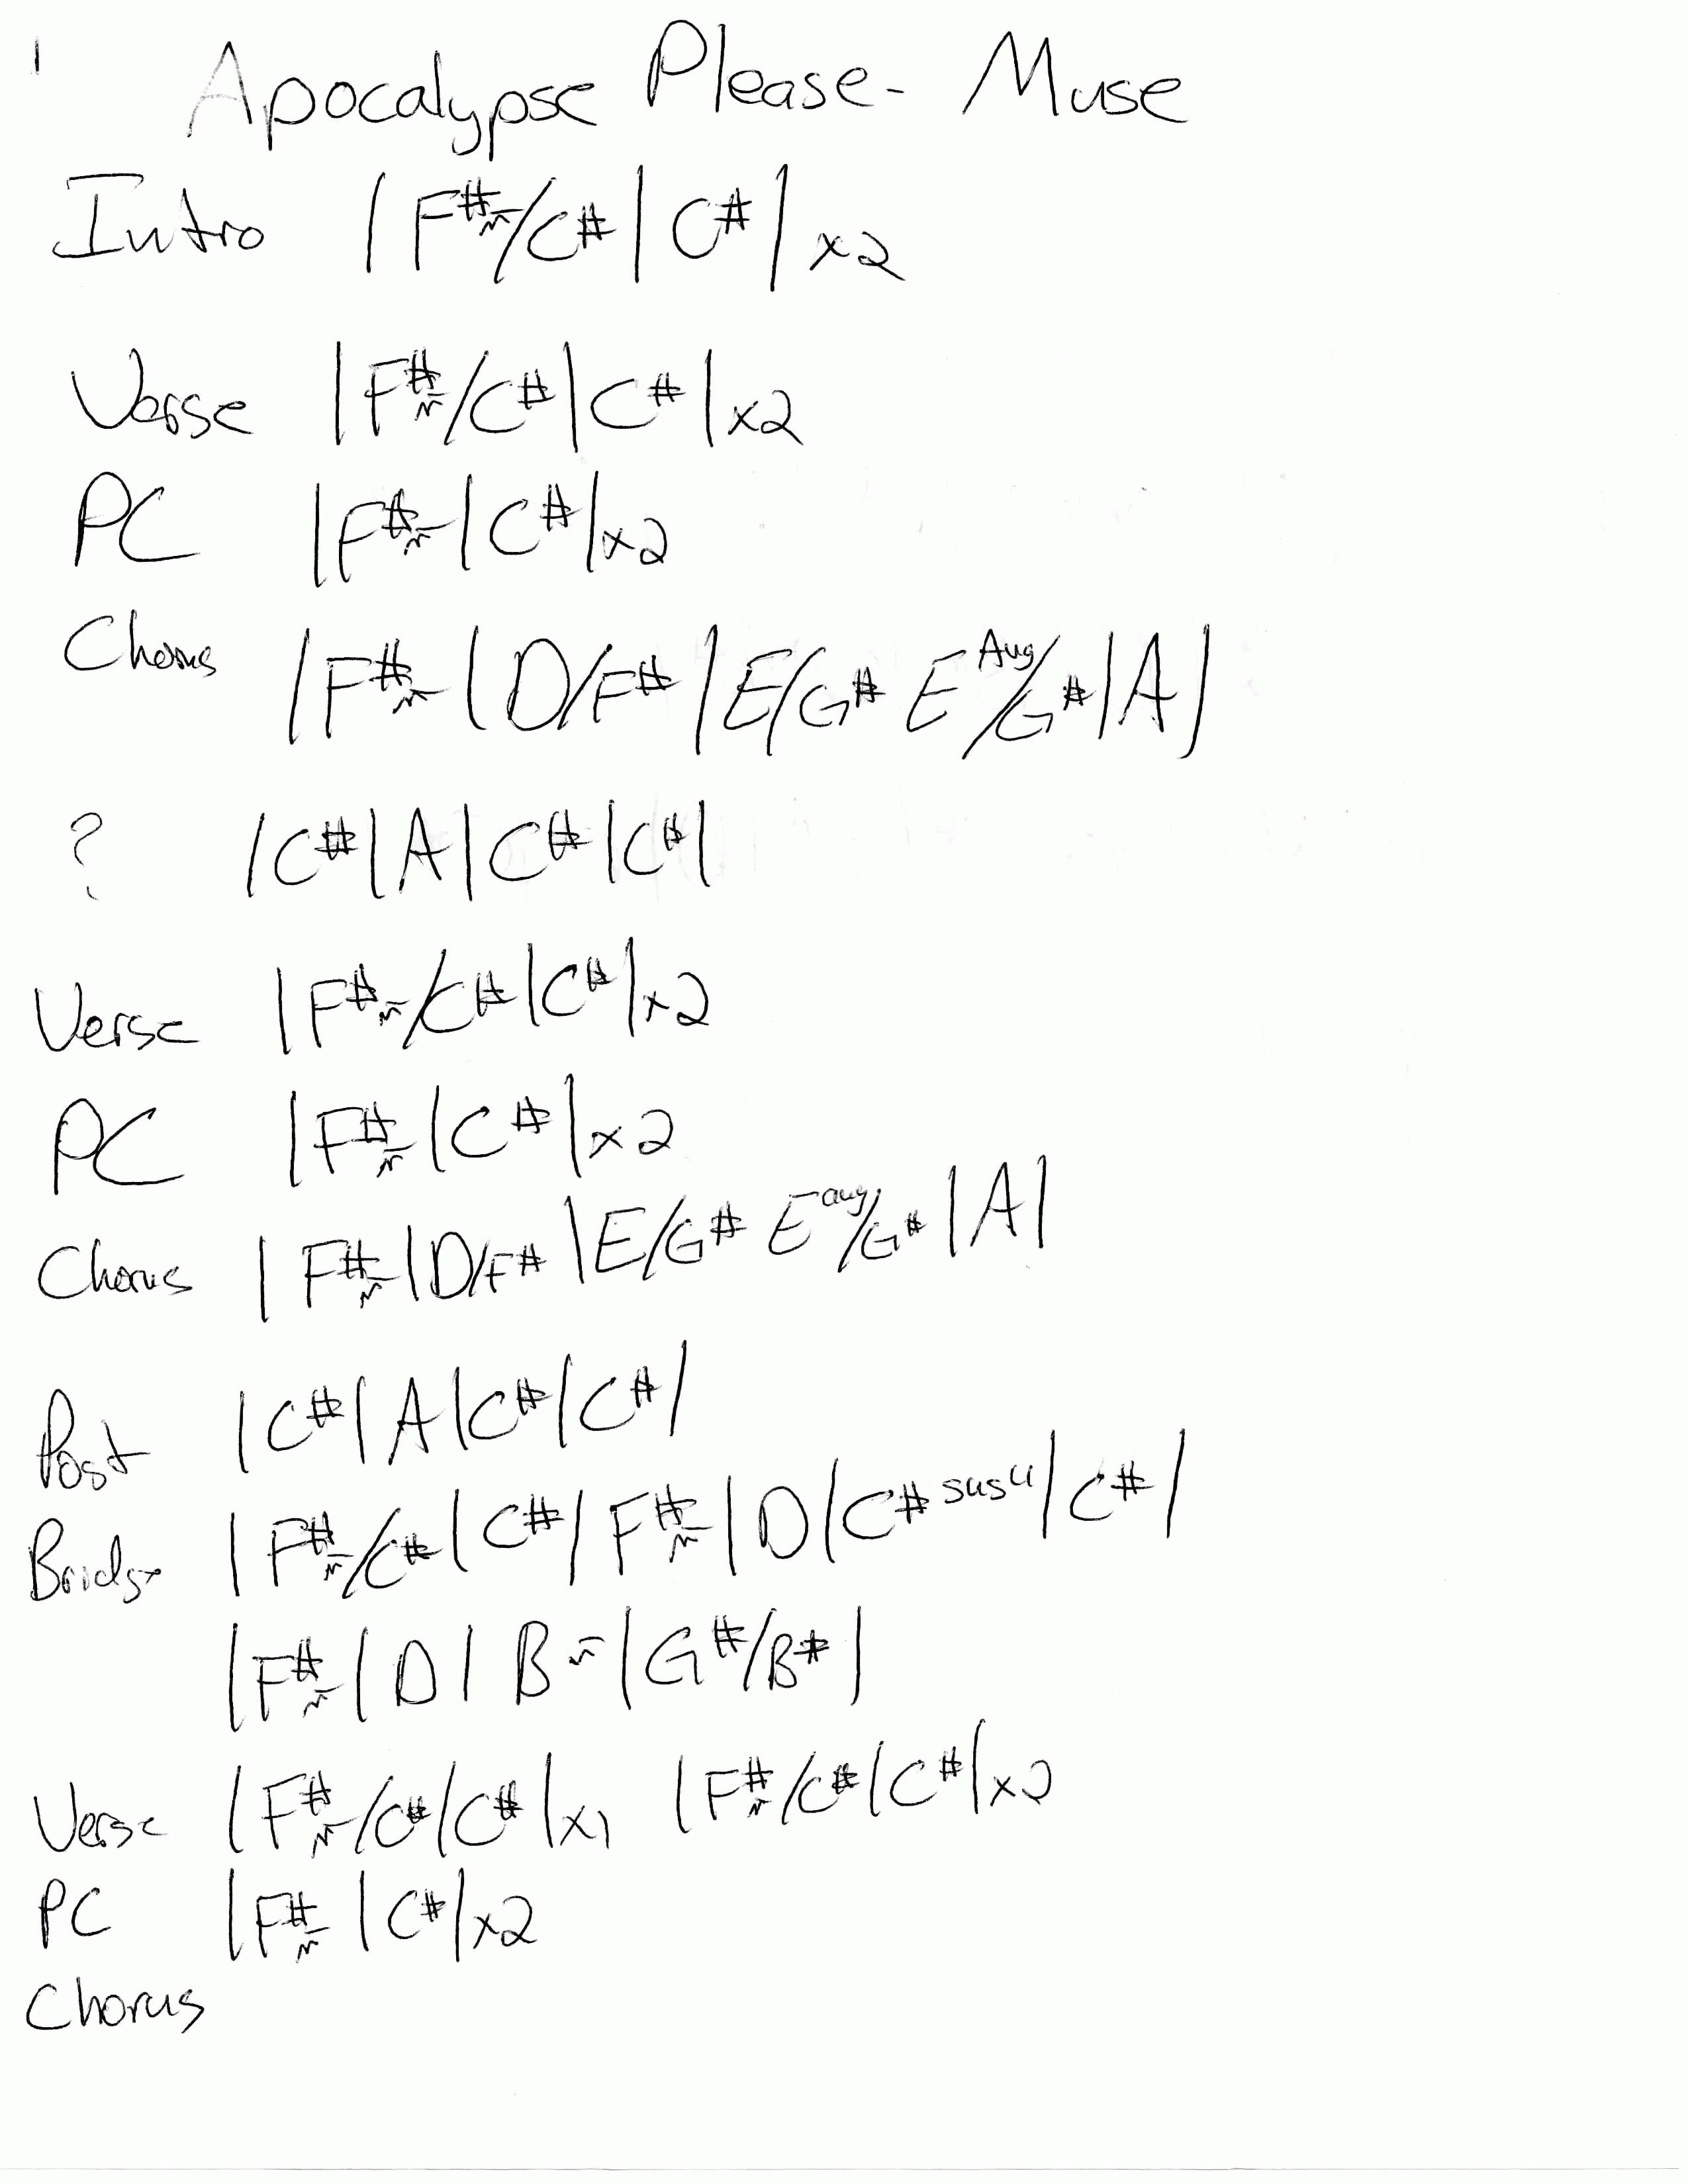 1
Apocalypse Please - Muse
Intro | F#m/C# | C# | x2
Verse | F#m/C# | C# | x2
PC | F#m | C# | x2
Chorus | F#m | D/F# | E/G# E Aug/G# | A |
? | C# | A | C# | C# |
Verse | F#m/C# | C# | x2
PC | F#m | C# | x2
Chorus | F#m | D/F# | E/G# E aug/G# | A |
Post | C# | A | C# | C# |
Bridge | F#m/C# | C# | F#m | D | C# sus4 | C# |
| F#m | D | Bm | G#/B# |
Verse | F#m/C# | C# | x1 | F#m/C# | C# | x2
PC | F#m | C# | x2
Chorus